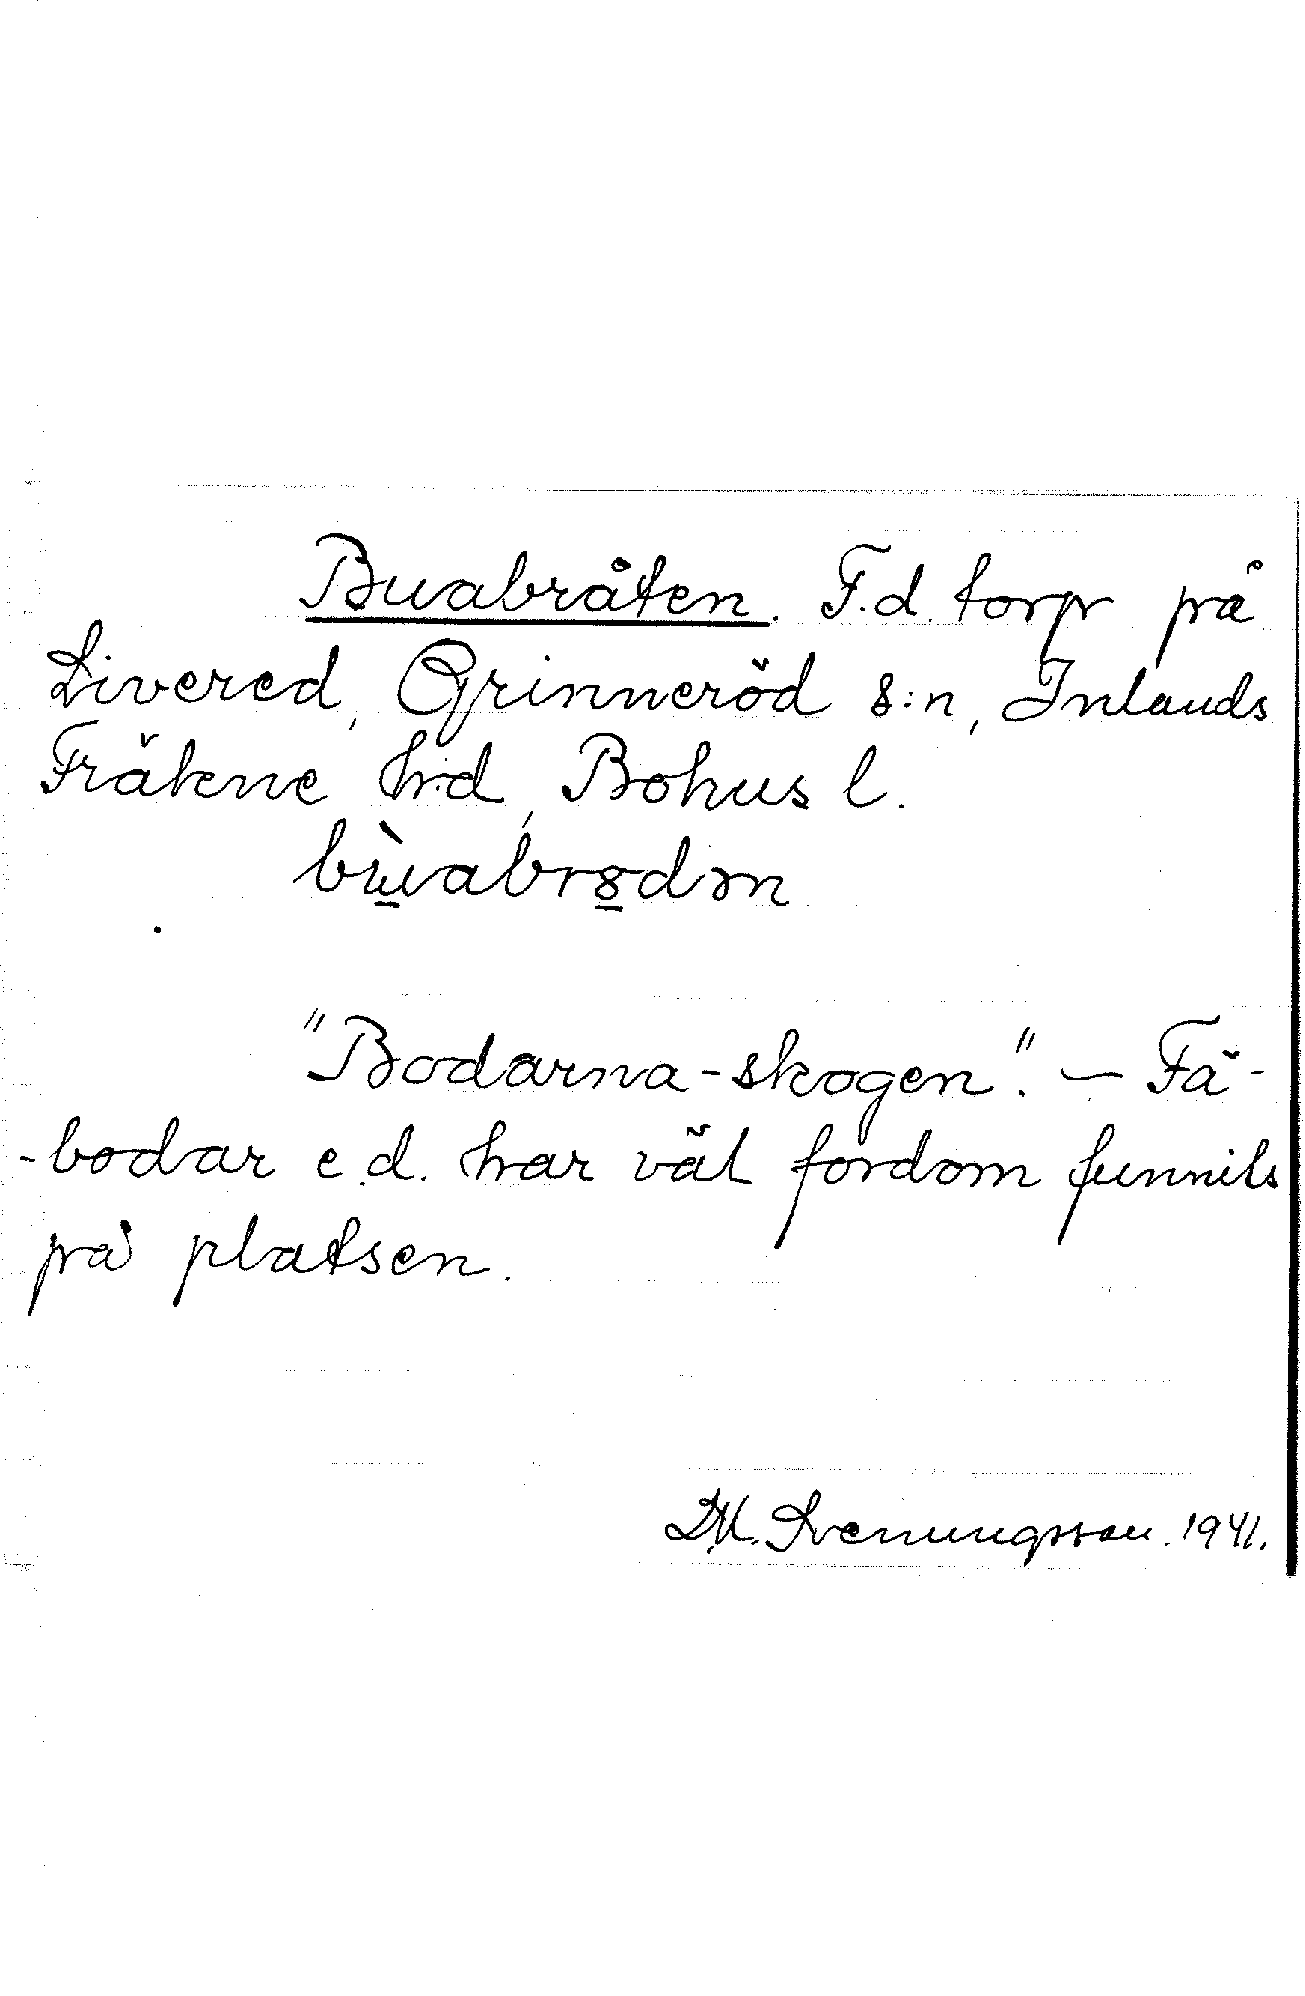 Buabråten. F.d. torp på
Livered, Grinneröd s:n, Inlands
Fräkne h:d, Bohus l.
bùvabr8dən
"Bodarna-skogen". - Fä-
-bodar e.d. har väl fordom funnits
på platsen.
D.M. Svenungsson. 1941.